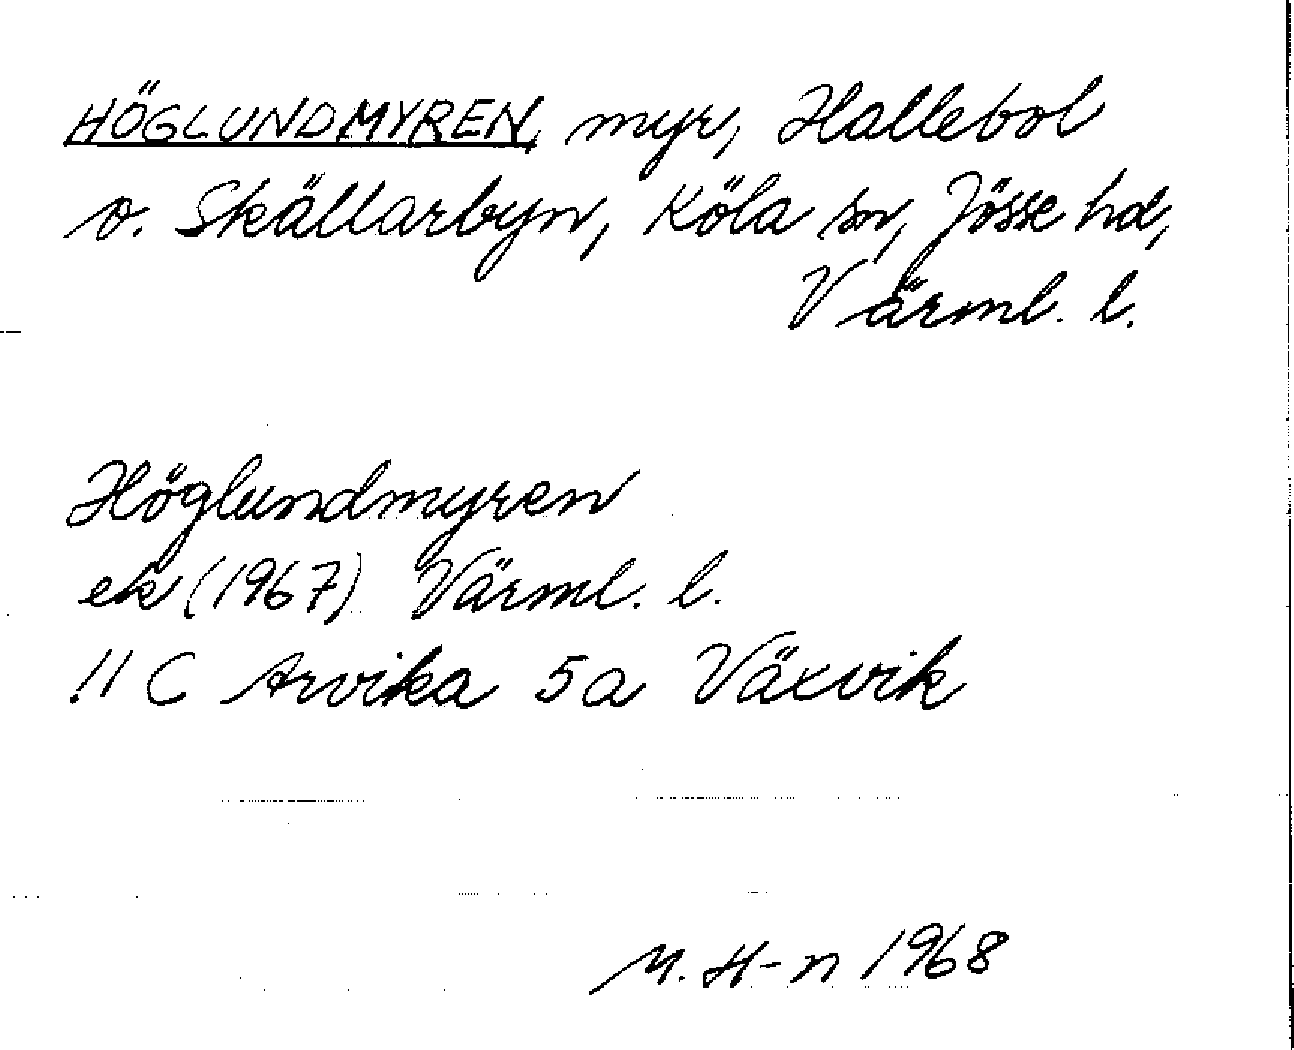 HÖGLUNDMYREN, myr, Hallebol
o. Skällarbyn, Köla sn, Jösse hd,
Värml. l.
Höglundmyren
ek (1967) Värml. l.
11 C Arvika 5a Växvik
M. H-n 1968